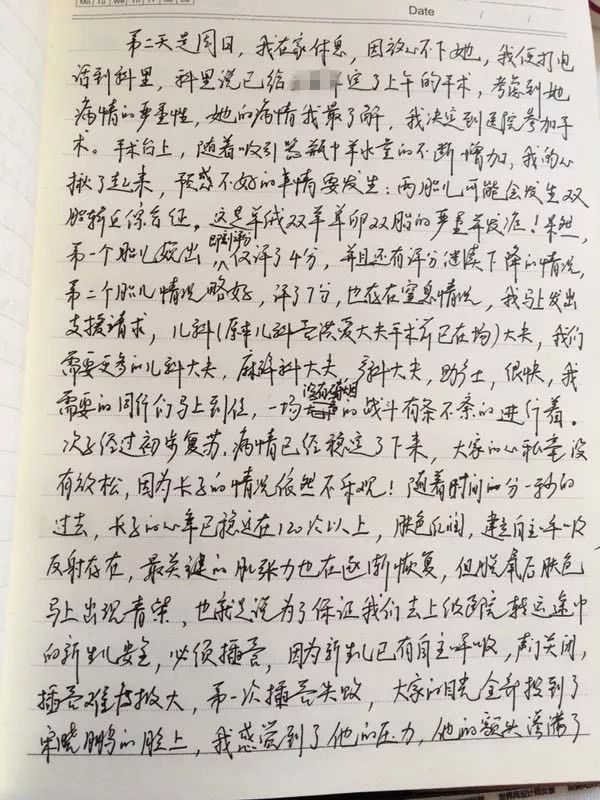 Mo Tu We Th Fr Sa Su
Date / /
第二天是周日，我在家休息，因放心不下她，我便打电
话到科里，科里说已给 定了上午的手术，考虑到她
病情的严重性，她的病情我最了解，我决定到医院参加手
术。手术台上，随着吸引器瓶中羊水量的不断增加，我的心
揪了起来，预感不好的事情要发生：两胎儿可能会发生双
胎输血综合征。这是单绒双羊单卵双胎的严重并发症！果然，
第一个胎儿娩出，即刻评分仅评了4分，并且还有评分继续下降的情况，
第二个胎儿情况略好，评了7分，也存在窒息情况，我马上发出
支援请求，儿科（原本儿科 大夫手术前已在场）大夫，我们
需要更多的儿科大夫，麻醉科大夫， 科大夫，助产士，很快，我
需要的同行们马上到位，一场没有硝烟的战斗有条不紊的进行着。
次子经过初步复苏，病情已经稳定了下来，大家的心私毫没
有放松，因为长子的情况依然不乐观！随着时间的一分一秒的
过去，长子的心率已稳定在120次以上，肤色红润，建立自主呼吸
反射存在，最关键的肌张力也在逐渐恢复，但脱氧后肤色
马上出现青紫，也就是说为了保证我们去上级医院转运途中
的新生儿安全，必须插管，因为新生儿已有自主呼吸，声门关闭，
插管难度极大，第一次插管失败，大家的目光全部投到了
宋晓鹏的脸上，我感觉到了他的压力，他的额头渗满了